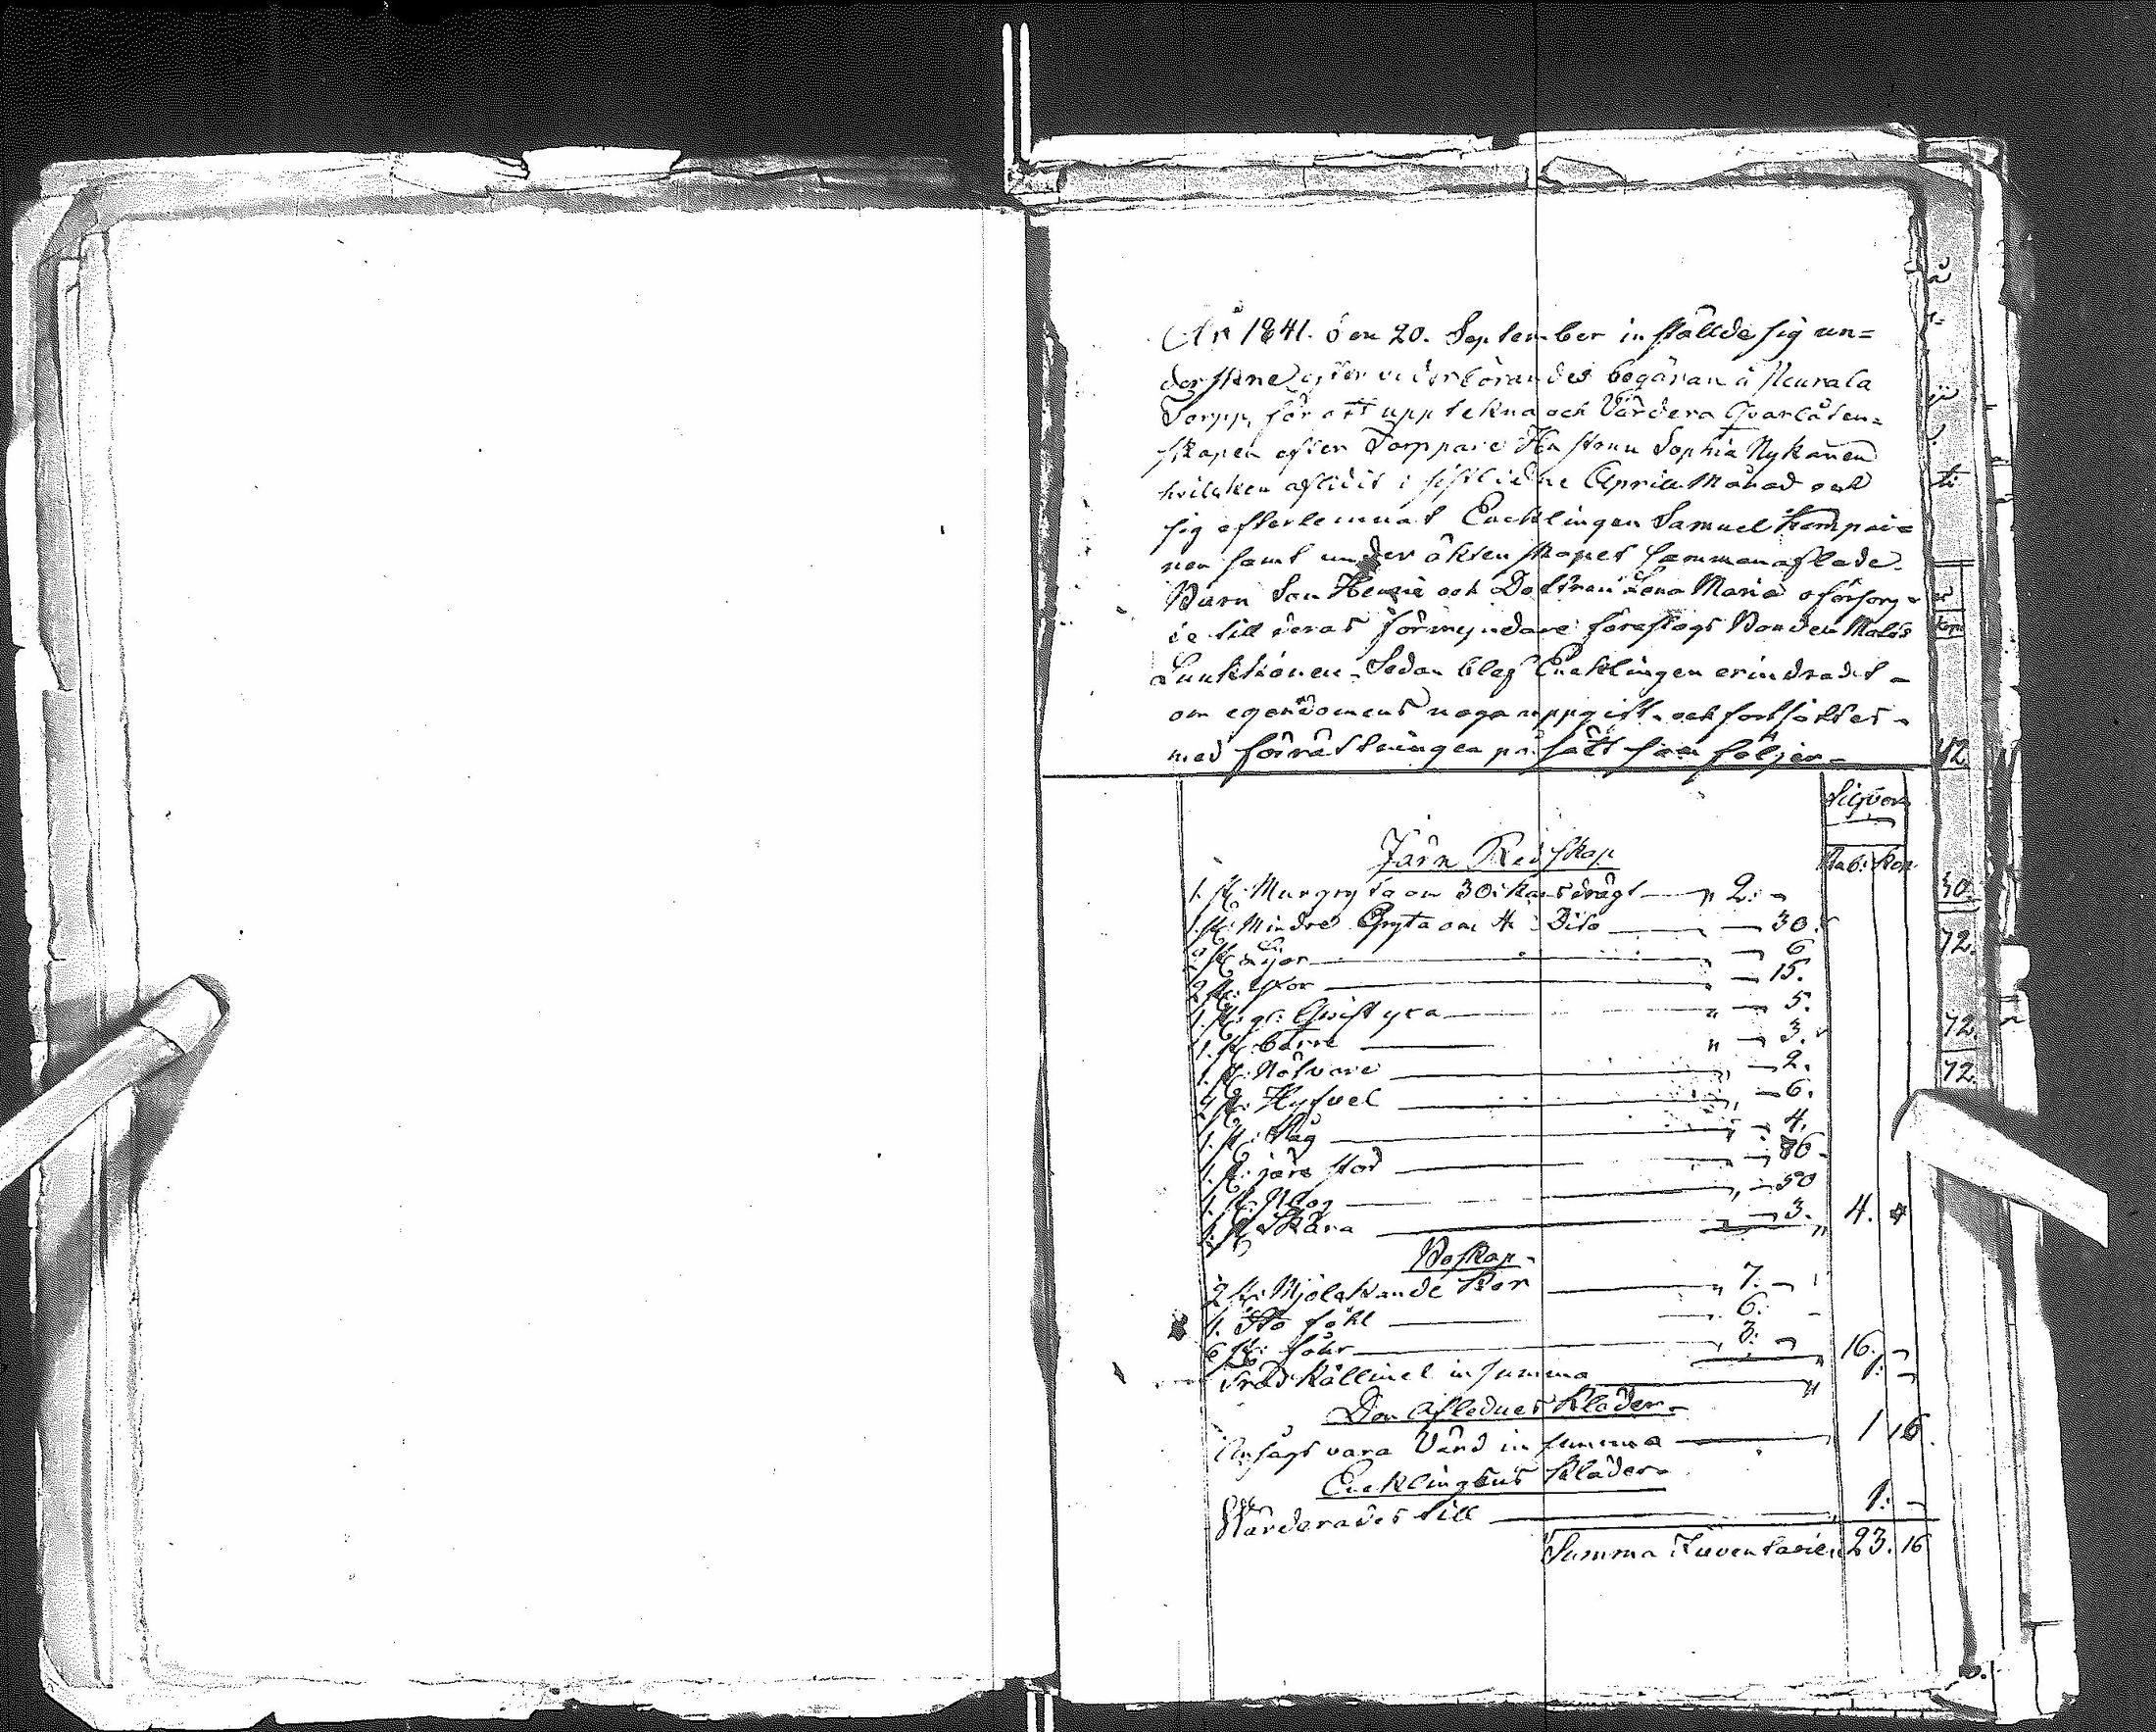 År 1841. den 20. September inställde sig un=
derskne efter vederbörandes begäran å
Torpp, för att upptekna och Värdera Qvarlåten=
skapen efter Torppare Hustrun Sophia Nykänen
hvilken aflidit i sistlidne Aprill Månad och
sig efterlemnat Encklingen Samuel Komppai=
nen samt under äktenskapet sammanaflade
Barn Son Henric och Dottren Lena Maria oförsörg=
de till deras förmyndare föreslogs Bonden Mats
Sedan blef Encklingen erindradt
om egendomens noga uppgift, och fortsattes
med förrättningen på sätt som följer
Silfver
Rub: Kop
Järn Redskap
1. st: Murgryta om 30: kans drägt 2:
1. st: Mindre Gryta om 4: Dito 30.
2 st: Lijor 6
2 st: Yxor 15.
1. st: gr: 5.
1. st: 3.
1. st: 2.
4 st: Hyfvel 6.
1. st: Såg 4.
1. st: järn stör 86
1. st: Plog 50
1. st: Skära 3. 4.
Boskap
2 st: Mjölckande Kor 7.
1. Sto föhl 6:
6 st: fåhr 3: 16.
Träd Källeinel in summa 1.
Den Aflednes Kläder
Ansågs vara Värd in summa 1 16.
Encklingens Kläder
Värderades till 1:
Summa Inventarien 23. 16